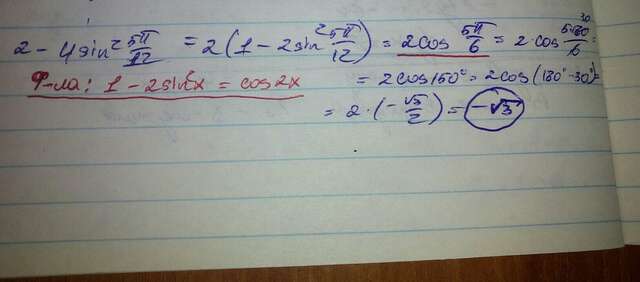 2 - 4sin² 5π/12 = 2(1 - 2sin² 5π/12) = 2cos 5π/6 = 2·cos 5·180/6 =
Ф-ла: 1 - 2sin²x = cos2x = 2cos150° = 2cos(180° - 30°) =
= 2·(-√3/2) = -√3